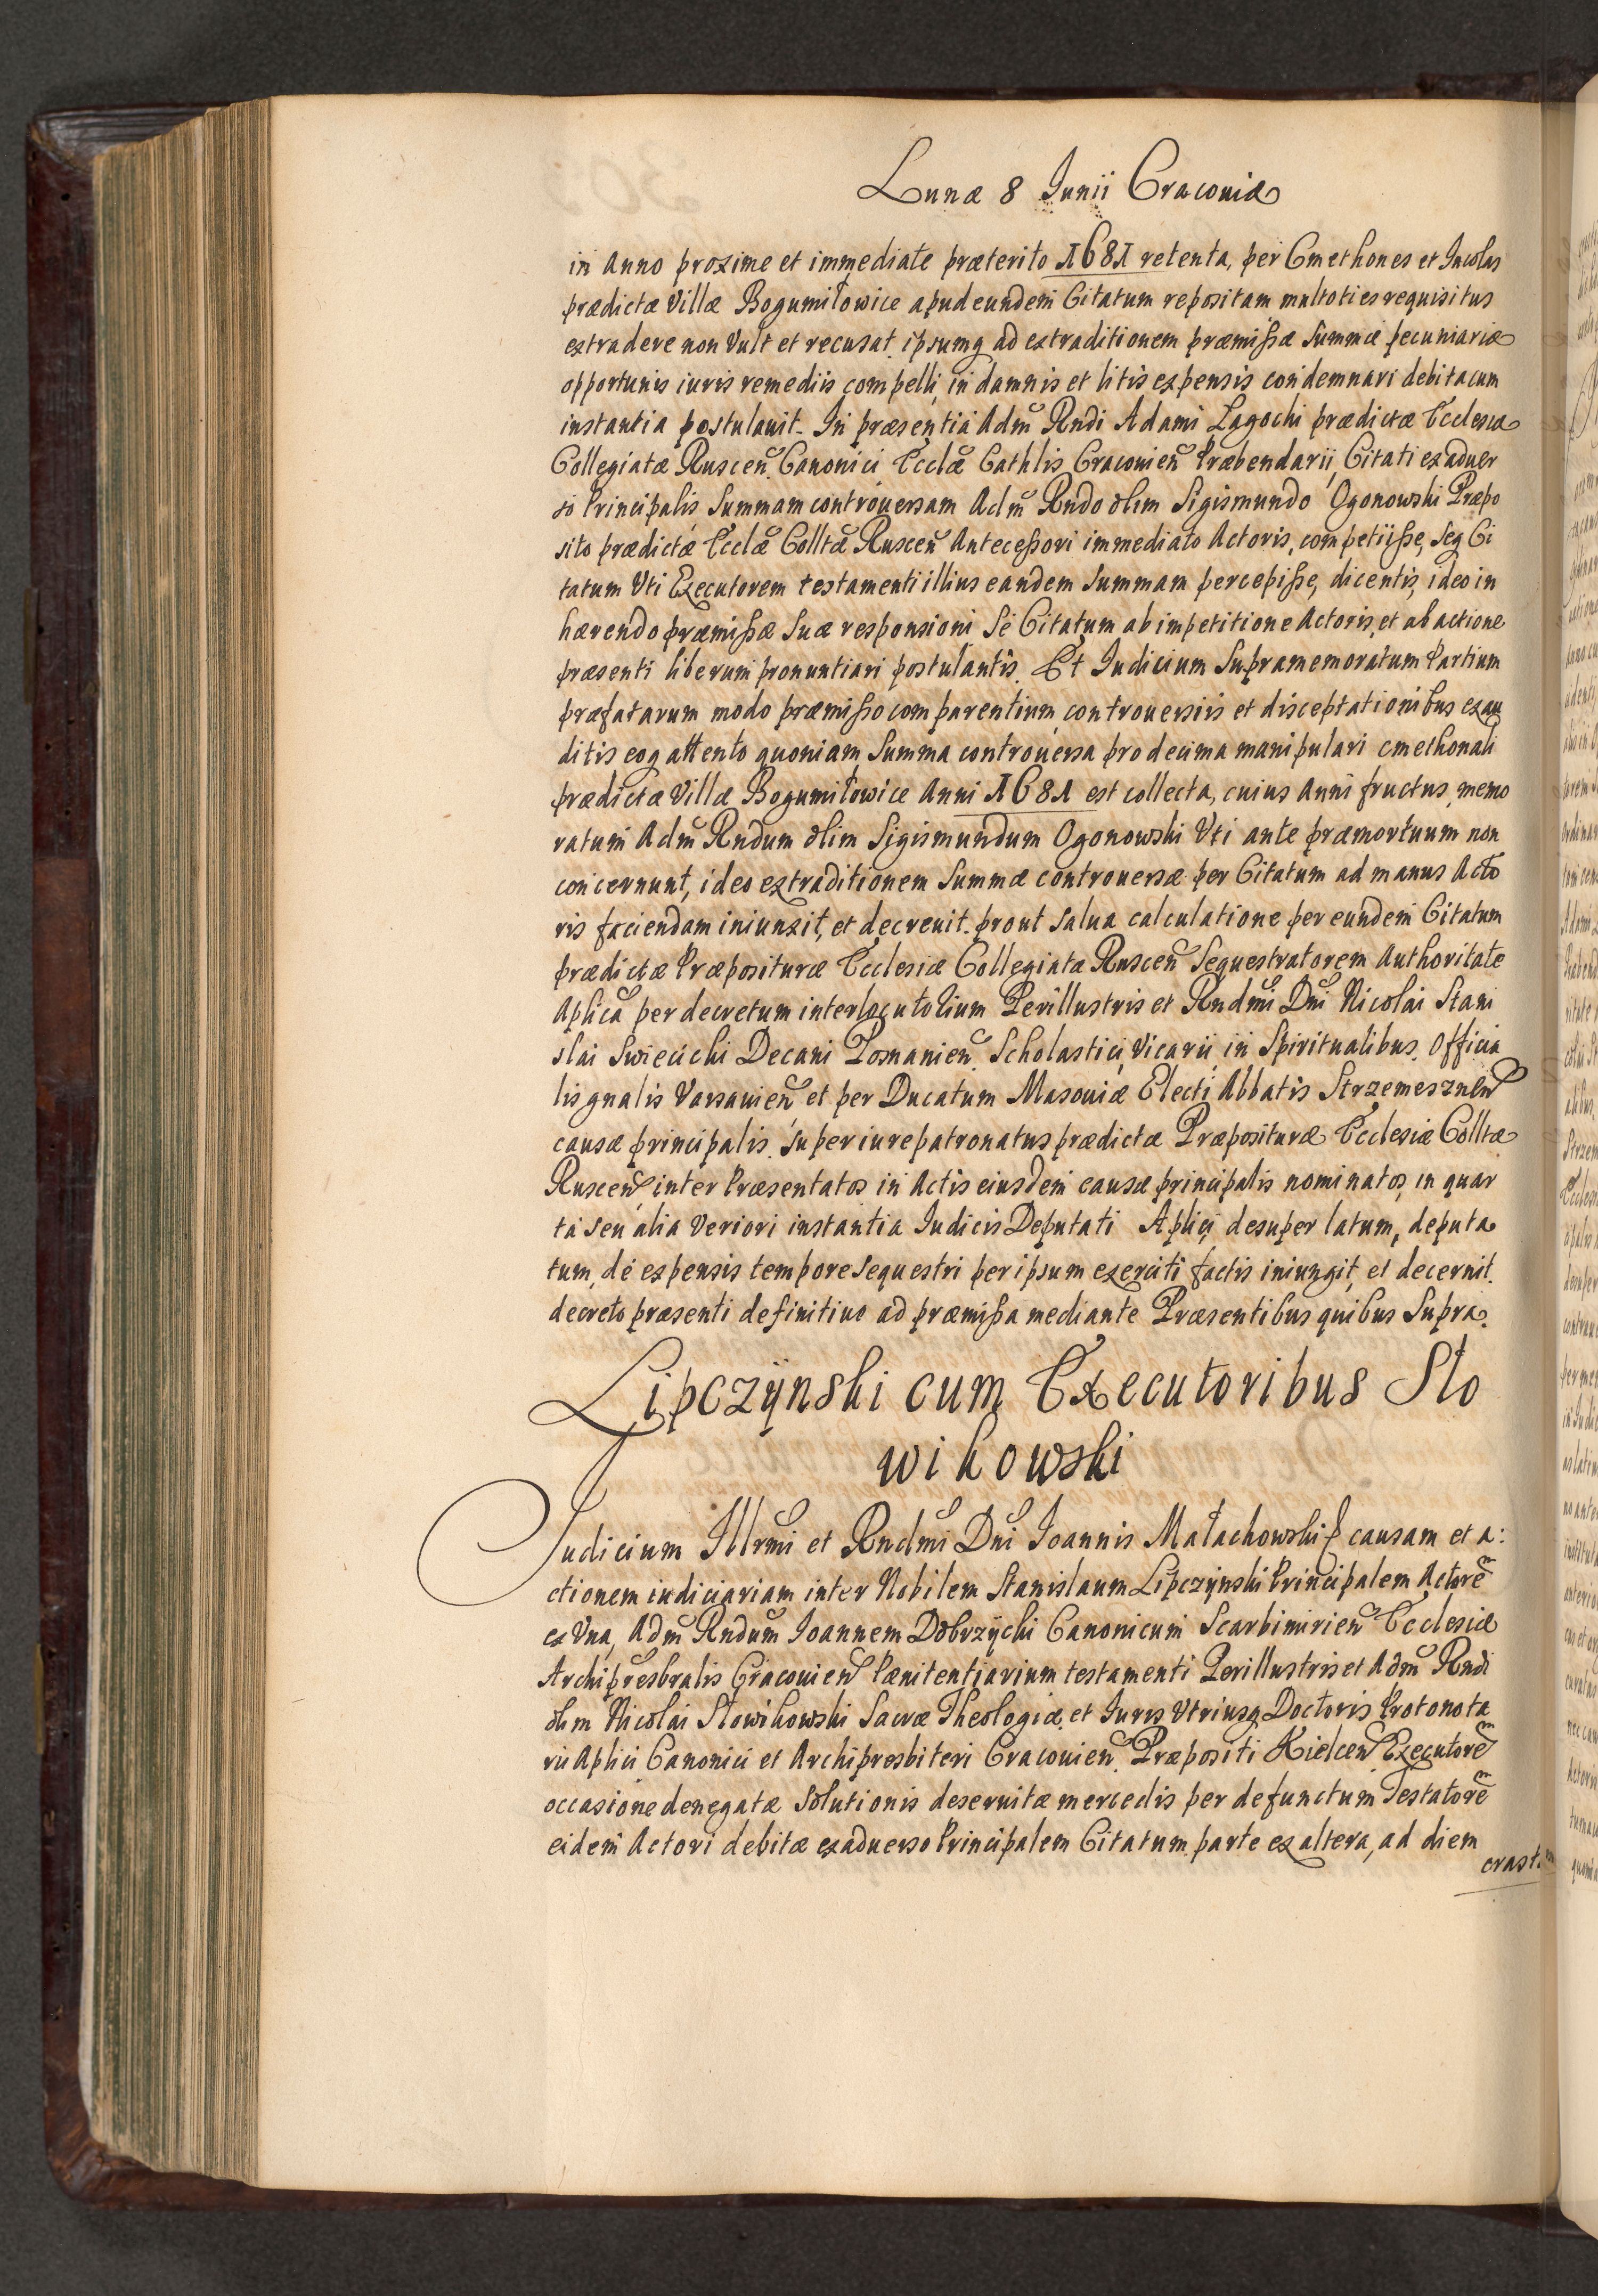 Lunæ 8 Junii Cracoviæ
in Anno proxime et immediate præterito 1681 retenta, per Cmethones et Incolas
prædictæ Villæ Bogumiłowice apud eundem Citatum repositam multoties requisitus
extradere non vult et recusat. ipsumq ad extraditionem præmissæ summæ pecuniariæ
opportunis iuris remediis compelli, in damnis et litis expensis condemnari debita cum
instantia postulauit. In præsentia Adm̃ Rndi Adami Lagocki prædictæ Ecclesiæ
Collegiatæ Ruscen̄ Canonici Eccl̃æ Cathlis Cracouien̄ Præbendarij, Citati ex aduer
so Principalis Summam controuersam Adm̃ Rndo olim Sigismundo Ogonowski Præpo
sito prædictæ Eccl̃æ Colltæ Ruscen̄ Antecessori immediato Actoris, competiisse, seq Ci
tatum Vti Executorem testamenti illius eandem Summam percepisse, dicentis, ideo in
hærendo præmissæ suæ responsioni Se Citatum ab impetitione Actoris, et ab actione
præsenti liberum pronuntiari postulantis. Et Iudicium Supramemoratum Partium
præfatarum modo præmisso comparentium controuersiis et disceptationibus exau
ditis eoq attento quoniam Summa controuersa pro decima manipulari cmethonali
prædictæ Villæ Bogumiłowice Anni 1681 est collecta, cuius Anni fructus, memo
ratum Adm̃ Rndum olim Sigismundum Ogonowski Vti ante præmortuum non
concernunt, ideo extraditionem Summæ controuersæ per Citatum ad manus Acto
ris faciendam iniunxit, et decreuit. prout salua calculatione per eundem Citatum
prædictæ Præposituræ Ecclesiæ Collegiatæ Ruscen̄ Sequestratorem Authoritate
Aplicã per decretum interlocutorium Perillustris et Rndmi Dni Nicolai Stani
slai Swiecicki Decani Posnanien̄. Scholastici, Vicarij in Spiritualibus Officia
lis gnalis Varsauien̄ et per Ducatum Masouiæ Electi Abbatis Strzemesznen̄
causæ principalis super iure patronatus prædictæ Præposituræ Ecclesiæ Colltæ
Ruscen̄ inter Præsentatos in Actis eiusdem causæ principalis nominatos, in quar
ta seu alia Veriori instantia Iudicis Deputati Aplici desuper latum, deputa
tum, de expensis tempore sequestri per ipsum exerciti factis iniungit, et decernit
decreto præsenti definitiuo ad præmissa mediante Præsentibus quibus Supra.
Lipczÿnski cum Executoribus Sło
wikowski
Judicium Illrmi et Rndmi Dni Joannis Małachowski ₽ causam et a:
ctionem iudiciariam inter Nobilem Stanislaum Lipczÿnski Principalem Actorẽm
ex Vna, Adm̃ Rndum Joannem Dobrzÿcki Canonicum Scarbimirien̄ Ecclesiæ
Archipresbralis Cracouien̄ Pænitentiarium testamenti Perillustris et Adm̃ Rndi
olim Nicolai Słowikowski Sacræ Theologiæ et Iuris Vtriusq Doctoris Protonota
rii Aplici Canonici et Archipresbiteri Cracouien̄. Præpositi Kielcen̄ Executorẽm
occasione denegatæ Solutionis deseruitæ mercedis per defunctum Testatorẽm
eidem Actori debitæ ex aduerso Principalem Citatum parte ex altera, ad diem